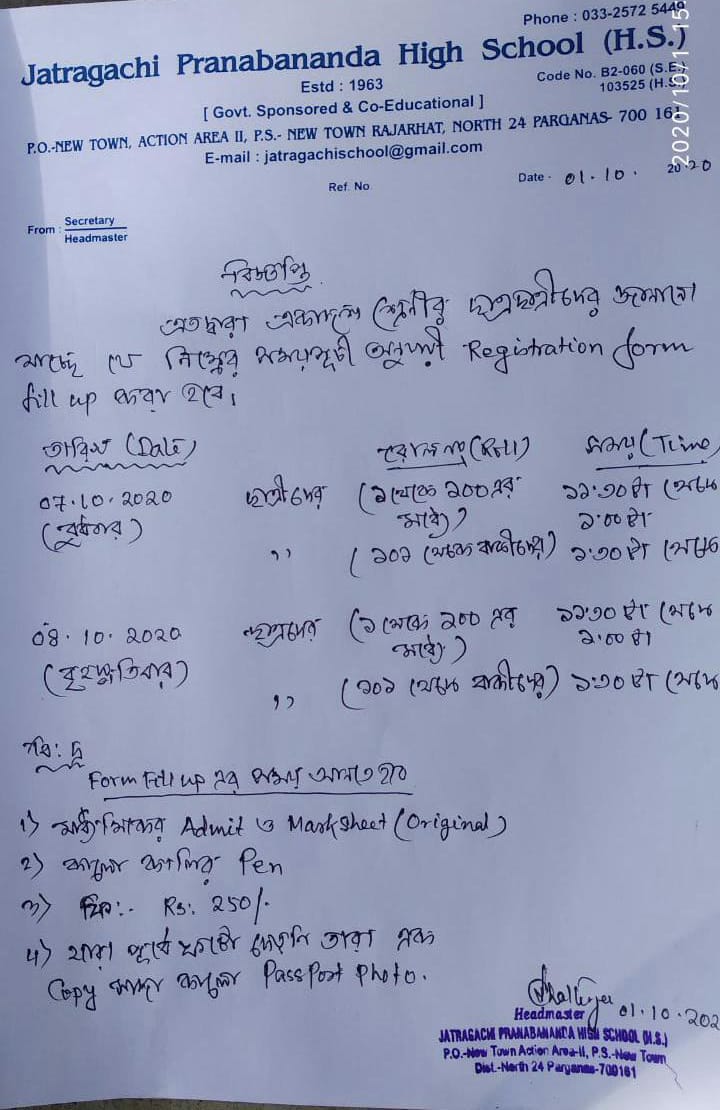 Phone : 033-2572 5449
Jatragachi Pranabananda High School (H.S.)
Estd : 1963
Code No. B2-060 (S.E.)
103525 (H.S.)
[ Govt. Sponsored & Co-Educational ]
P.O.-NEW TOWN, ACTION AREA II, P.S.- NEW TOWN RAJARHAT, NORTH 24 PARGANAS- 700 161
E-mail : jatragachischool@gmail.com
2020/10/1 15
Ref. No
Date - 01.10. 2020
From : Secretary
Headmaster
বিজ্ঞপ্তি
এতদ্বারা একাদশ শ্রেণীর ছাত্রছাত্রীদের জানানো
যাচ্ছে যে নিম্নের সময়সূচী অনুযায়ী Registration form
fill up করা হবে।
তারিখ (Date) রোল নং (Roll) সময় (Time)
07.10.2020 ছাত্রীদের (১ থেকে ১০০ এর ১১:৩০ টা থেকে
(বুধবার) মধ্যে) ১:০০ টা
,, (১০১ থেকে বাকীদের) ১:৩০ টা থেকে
08.10.2020 ছাত্রদের (১ থেকে ১০০ এর ১১:৩০ টা থেকে
(বৃহস্পতিবার) মধ্যে) ১:০০ টা
,, (১০১ থেকে বাকীদের) ১:৩০ টা থেকে
বি: দ্র
Form Fill up এর সময় আনতে হবে
১) মাধ্যমিকের Admit ও Marksheet (Original)
২) কালো কালির Pen
৩) ফি:- Rs: 250/-
৪) যারা পূর্বে ফটো দেয়নি তারা এক
Copy সাদা কালো PassPort Photo.
Headmaster 01.10.202
JATRAGACHI PRANABANANDA HIGH SCHOOL (H.S.)
P.O.-New Town Action Area-II, P.S.-New Town
Dist.-North 24 Parganas-700161